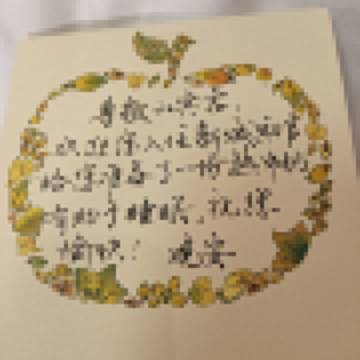 尊敬的宾客：
欢迎您入住
给您准备了一份热牛奶
有助于睡眠，祝您
愉快！ 晚安